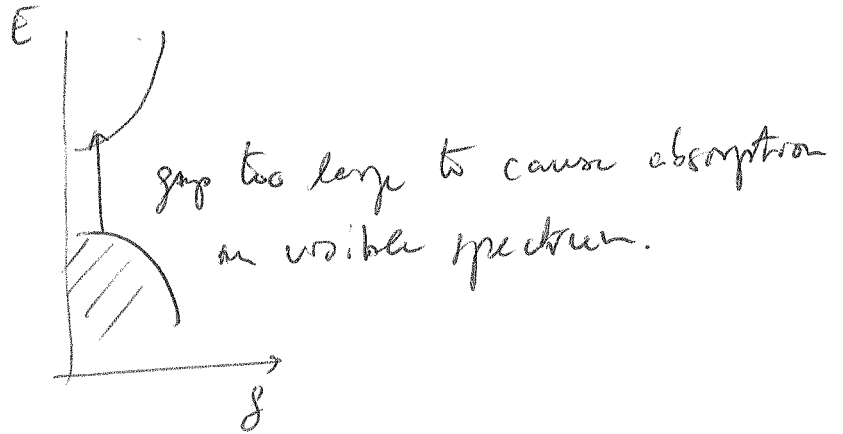 E
gap too large to cause absorption
in visible spectrum.
g